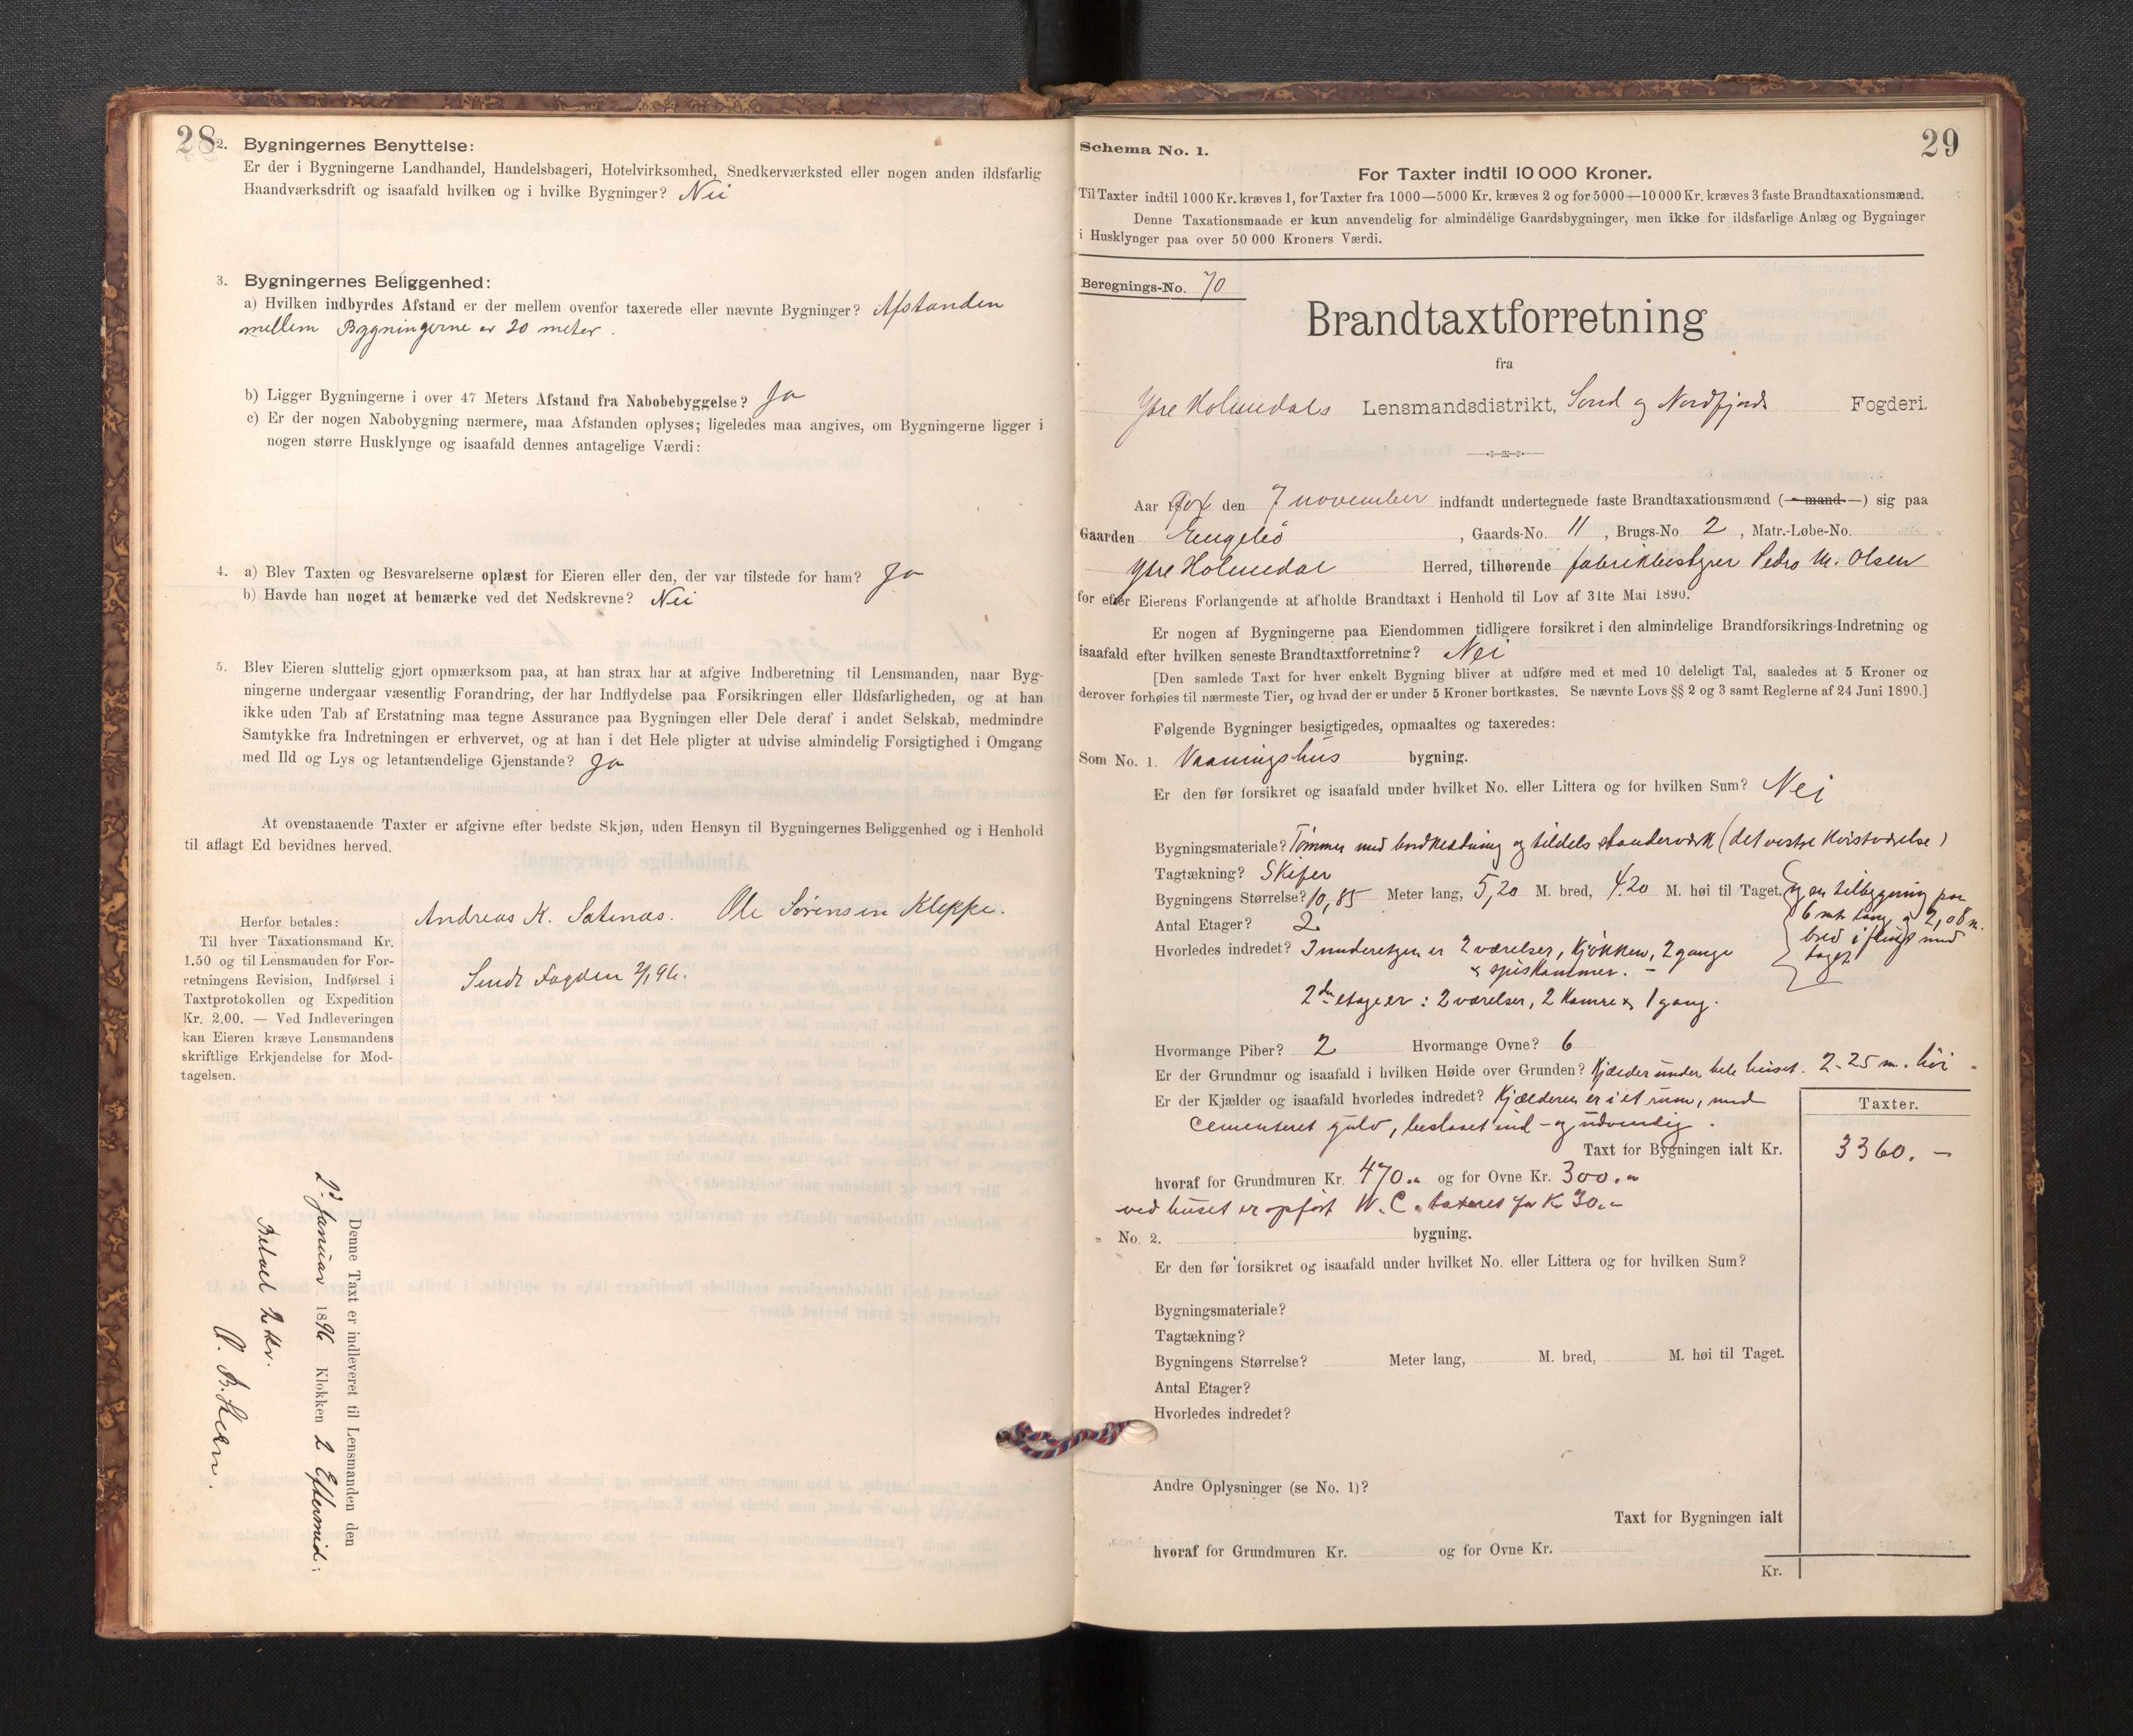 28
2. Bygningernes Benyttelse:
Er der i Bygningerne Landhandel, Handelsbageri, Hotelvirksomhed, Snedkerværksted eller nogen anden ildsfarlig
Haandværksdrift og isaafald hvilken og i hvilke Bygninger? Nei
3. Bygningernes Beliggenhed:
a) Hvilken indbyrdes Afstand er der mellem ovenfor taxerede eller nævnte Bygninger? Afstanden
mellem Bygningerne er 20 meter.
b) Ligger Bygningerne i over 47 Meters Afstand fra Nabobebyggelse? Ja
c) Er der nogen Nabobygning nærmere, maa Afstanden oplyses; ligeledes maa angives, om Bygningerne ligger i
nogen større Husklynge og isaafald dennes antagelige Værdi:
4. a) Blev Taxten og Besvarelserne oplæst for Eieren eller den, der var tilstede for ham? Ja
b) Havde han noget at bemærke ved det Nedskrevne? Nei
5. Blev Eieren sluttelig gjort opmærksom paa, at han strax har at afgive Indberetning til Lensmanden, naar Byg-
ningerne undergaar væsentlig Forandring, der har Indflydelse paa Forsikringen eller Ildsfarligheden, og at han
ikke uden Tab af Erstatning maa tegne Assurance paa Bygningen eller Dele deraf i andet Selskab, medmindre
Samtykke fra Indretningen er erhvervet, og at han i det Hele pligter at udvise almindelig Forsigtighed i Omgang
med Ild og Lys og letantændelige Gjenstande? Ja
At ovenstaaende Taxter er afgivne efter bedste Skjøn, uden Hensyn til Bygningernes Beliggenhed og i Henhold
til aflagt Ed bevidnes herved.
Andreas K. Satenæs. Ole Sørensen Kleppe.
Sendt Fogden 2/1 96.
Herfor betales:
Til hver Taxationsmand Kr.
1.50 og til Lensmanden for For-
retningens Revision, Indførsel i
Taxtprotokollen og Expedition
Kr. 2.00. — Ved Indleveringen
kan Eieren kræve Lensmandens
skriftlige Erkjendelse for Mod-
tagelsen.
Denne Taxt er indleveret til Lensmanden den
2. Januar 1896 Klokken 2 Eftermid.
Betalt 2 Kr.
29
Schema No. 1.
For Taxter indtil 10 000 Kroner.
Til Taxter indtil 1000 Kr. kræves 1, for Taxter fra 1000—5000 Kr. kræves 2 og for 5000—10 000 Kr. kræves 3 faste Brandtaxationsmænd.
Denne Taxationsmaade er kun anvendelig for almindelige Gaardsbygninger, men ikke for ildsfarlige Anlæg og Bygninger
i Husklynger paa over 50 000 Kroners Værdi.
Beregnings-No. 70
Brandtaxtforretning
fra
Ytre Holmedals Lensmandsdistrikt, Sønd og Nordfjords Fogderi.
Aar den 7 november indfandt undertegnede faste Brandtaxationsmænd (— mand —) sig paa
Gaarden Engebø, Gaards-No. 11, Brugs-No 2, Matr.-Løbe-No.
Ytre Holmedal Herred, tilhørende fabrikbestyrer Pedro M. Olsen
for efter Eierens Forlangende at afholde Brandtaxt i Henhold til Lov af 31te Mai 1890.
Er nogen af Bygningerne paa Eiendommen tidligere forsikret i den almindelige Brandforsikrings-Indretning og
isaafald efter hvilken seneste Brandtaxtforretning? Nei
[Den samlede Taxt for hver enkelt Bygning bliver at udføre med et med 10 deleligt Tal, saaledes at 5 Kroner og
derover forhøies til nærmeste Tier, og hvad der er under 5 Kroner bortkastes. Se nævnte Lovs §§ 2 og 3 samt Reglerne af 24 Juni 1890.]
Følgende Bygninger besigtigedes, opmaaltes og taxeredes:
Som No. 1. Vaaningshus bygning.
Er den før forsikret og isaafald under hvilket No. eller Littera og for hvilken Sum? Nei
Bygningsmateriale? Tømmer med bordklædning og tildels standerværk (det vestre Kvistværelse)
Tagtækning? Skifer
Bygningens Størrelse? 10,85 Meter lang, 5,20 M. bred, 4.20 M. høi til Taget. og en tilbygning paa
6 mtr lang og 2,08 m.
bred i flugt med
taget
Antal Etager? 2
Hvorledes indredet? I underetgen er 2 værelser, Kjøkken, 2 gange
& spiskammer. —
2den etage er: 2 værelser, 2 Kamre & 1 gang.
Hvormange Piber? 2 Hvormange Ovne? 6
Er der Grundmur og isaafald i hvilken Høide over Grunden? Kjælder under hele huset. 2.25 m. høi
Er der Kjælder og isaafald hvorledes indredet? Kjælderen er i et rum, med
Cementeret gulv, beslaaet ind- og udvendig.
Taxter.
Taxt for Bygningen ialt Kr. 3360. —
hvoraf for Grundmuren Kr. 470.„ og for Ovne Kr. 300.„
ved huset er opført W. C. taxeret for Kr 30.—
„ No. 2. bygning.
Er den før forsikret og isaafald under hvilket No. eller Littera og for hvilken Sum?
Bygningsmateriale?
Tagtækning?
Bygningens Størrelse? Meter lang, M. bred, M. høi til Taget.
Antal Etager?
Hvorledes indredet?
Andre Oplysninger (se No. 1)?
Taxt for Bygningen ialt
hvoraf for Grundmuren Kr. og for Ovne Kr.
Kr.